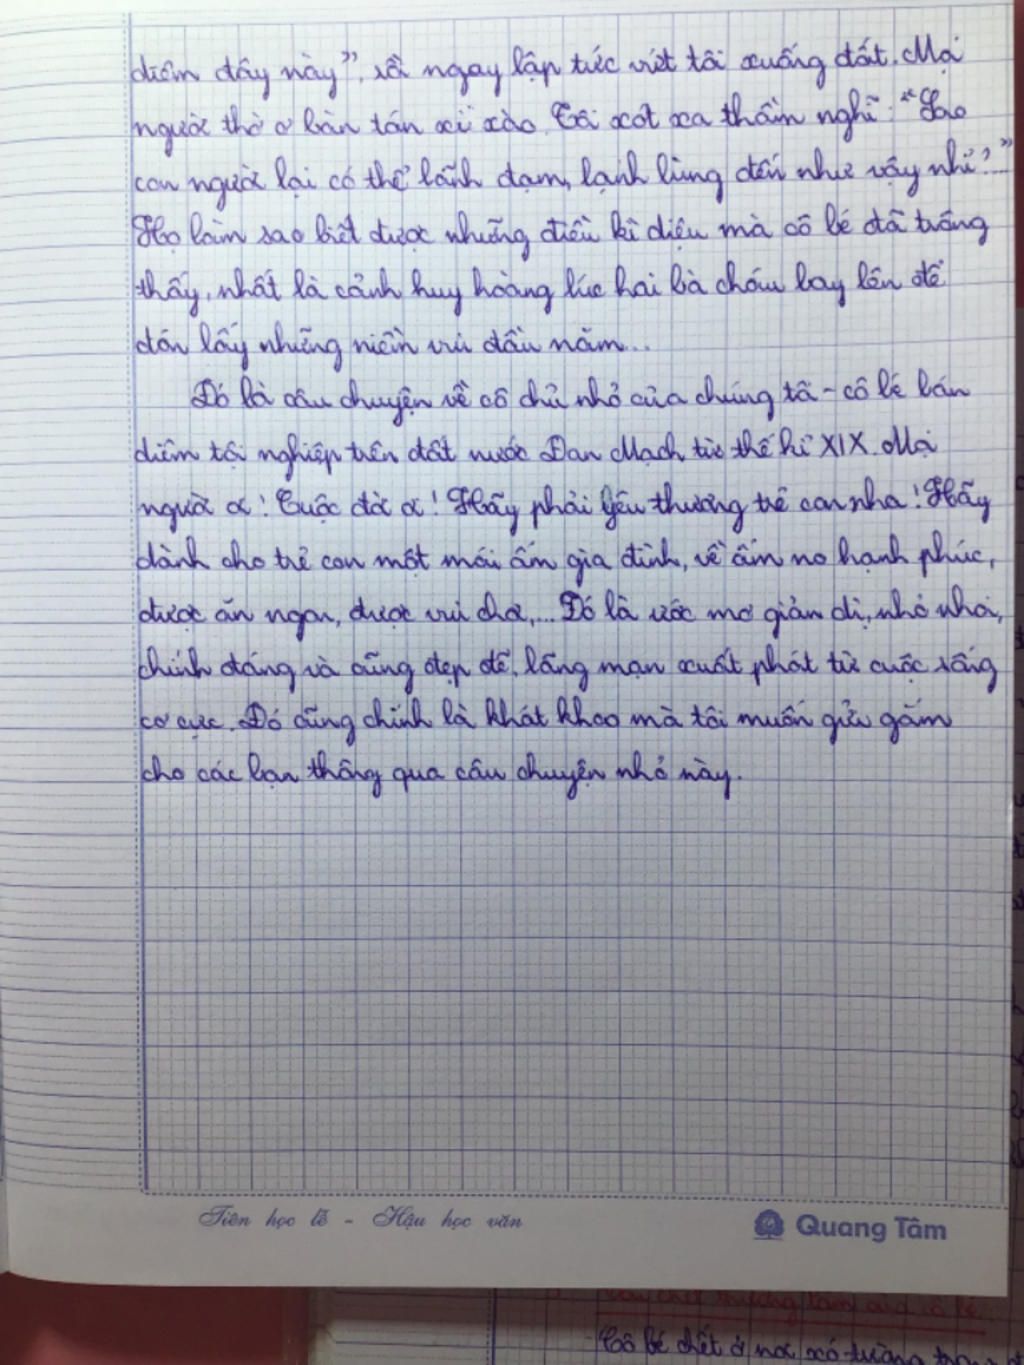 diêm đây này", rồi ngay lập tức vứt tôi xuống đất. Mọi
người thờ ơ bàn tán xì xào. Tôi xót xa thầm nghĩ: "Sao
con người lại có thể lãnh đạm, lạnh lùng đến như vậy nhỉ?..."
Họ làm sao biết được những điều kì diệu mà cô bé đã trông
thấy, nhất là cảnh huy hoàng lúc hai bà cháu bay lên để
đón lấy những niềm vui đầu năm...
Đó là câu chuyện về cô chủ nhỏ của chúng tôi - cô bé bán
diêm tội nghiệp trên đất nước Đan Mạch từ thế kỉ XIX. Mọi
người ơi! Cuộc đời ơi! Hãy phải yêu thương trẻ con nha! Hãy
dành cho trẻ con một mái ấm gia đình, về ấm no hạnh phúc,
được ăn ngon, được vui chơi,... Đó là ước mơ giản dị, nhỏ nhoi,
chính đáng và cũng đẹp đẽ, lãng mạn xuất phát từ cuộc sống
cơ cực. Đó cũng chính là khát khao mà tôi muốn gửi gắm
cho các bạn thông qua câu chuyện nhỏ này.
Tiên học lễ - Hậu học văn
Quang Tâm
Cô bé chết ở nơi xó tường